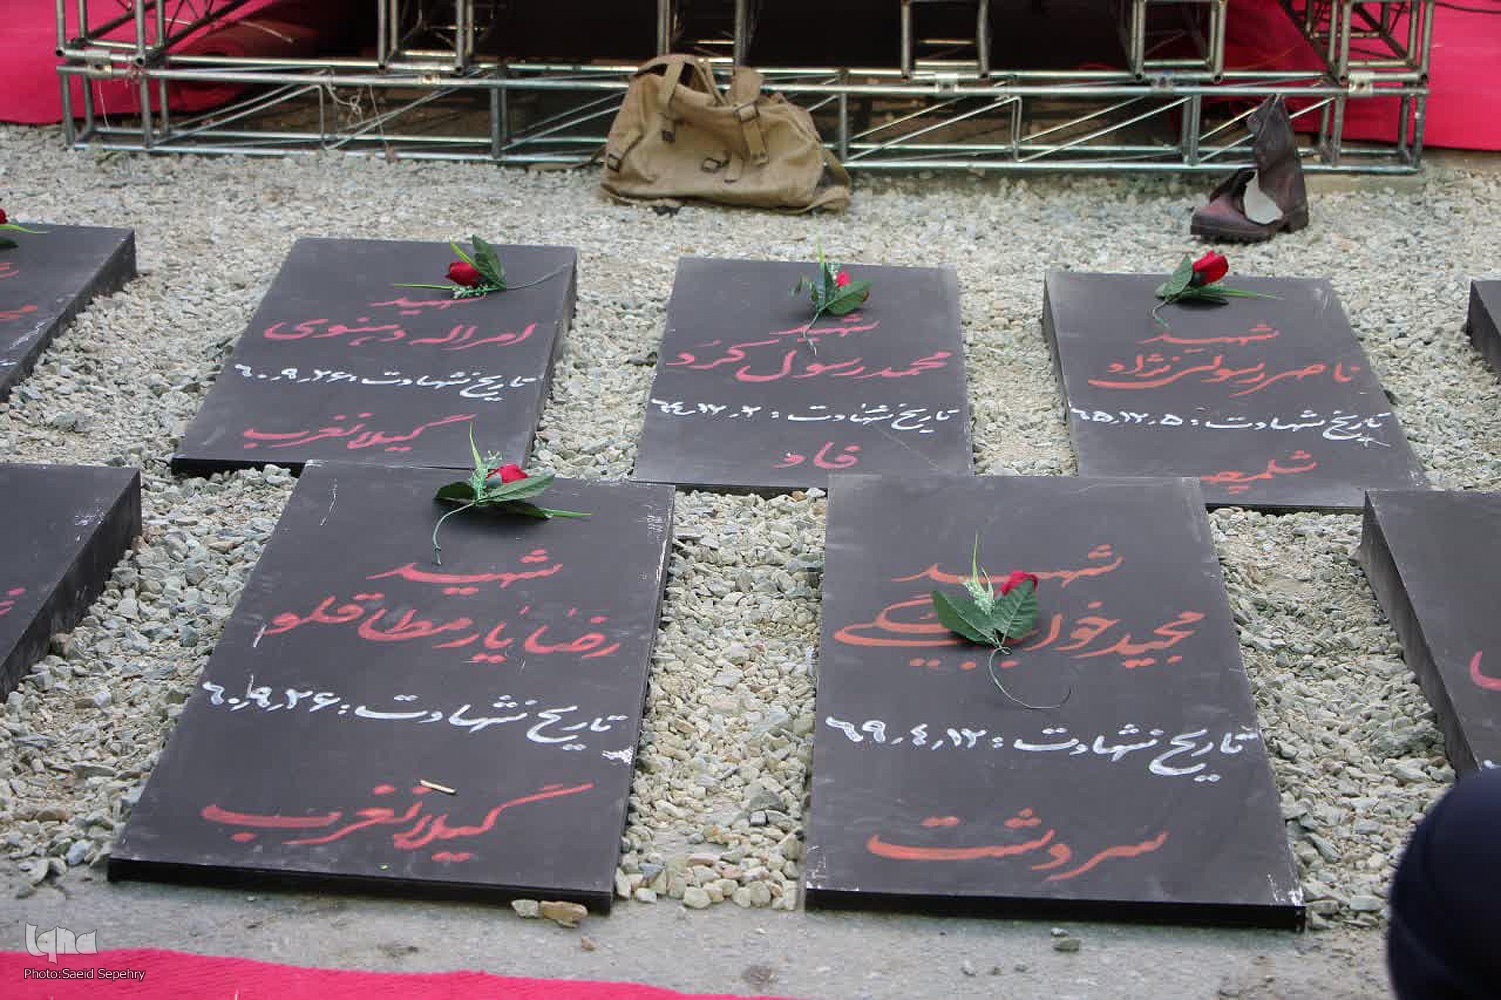 شهید
امراله دهنوی
تاریخ شهادت: ۶۰٫۹٫۲۶
گیلانغرب
شهید
محمد رسول کرد
تاریخ شهادت: ۶۴٫۱۲٫۲
فاو
شهید
ناصر رسولی نژاد
تاریخ شهادت: ۶۵٫۱۲٫۵
شلمچه
شهید
رضا یارمطاقلو
تاریخ شهادت: ۶۰٫۹٫۲۶
گیلانغرب
شهید
مجید
تاریخ شهادت: ۶۹٫۴٫۱۲
سردشت
Iqna
Photo:Saeid Sepehry